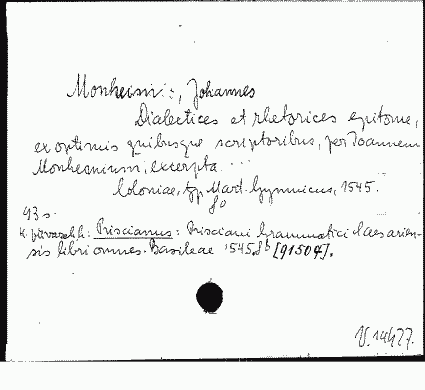 Monheim:, Johannes
Dialectices et rhetorices epitome,
ex optimis quibusque scriptoribus, per Joannem
Monhemium, excerpta ...
Coloniae, typ. Mart. Gymnicus, 1545.
8°
93 s.
Priscianus: Prisciani Grammatici Caesarien-
sis libri omnes. Basileae 1545. 8° [91504].
V. 14477.